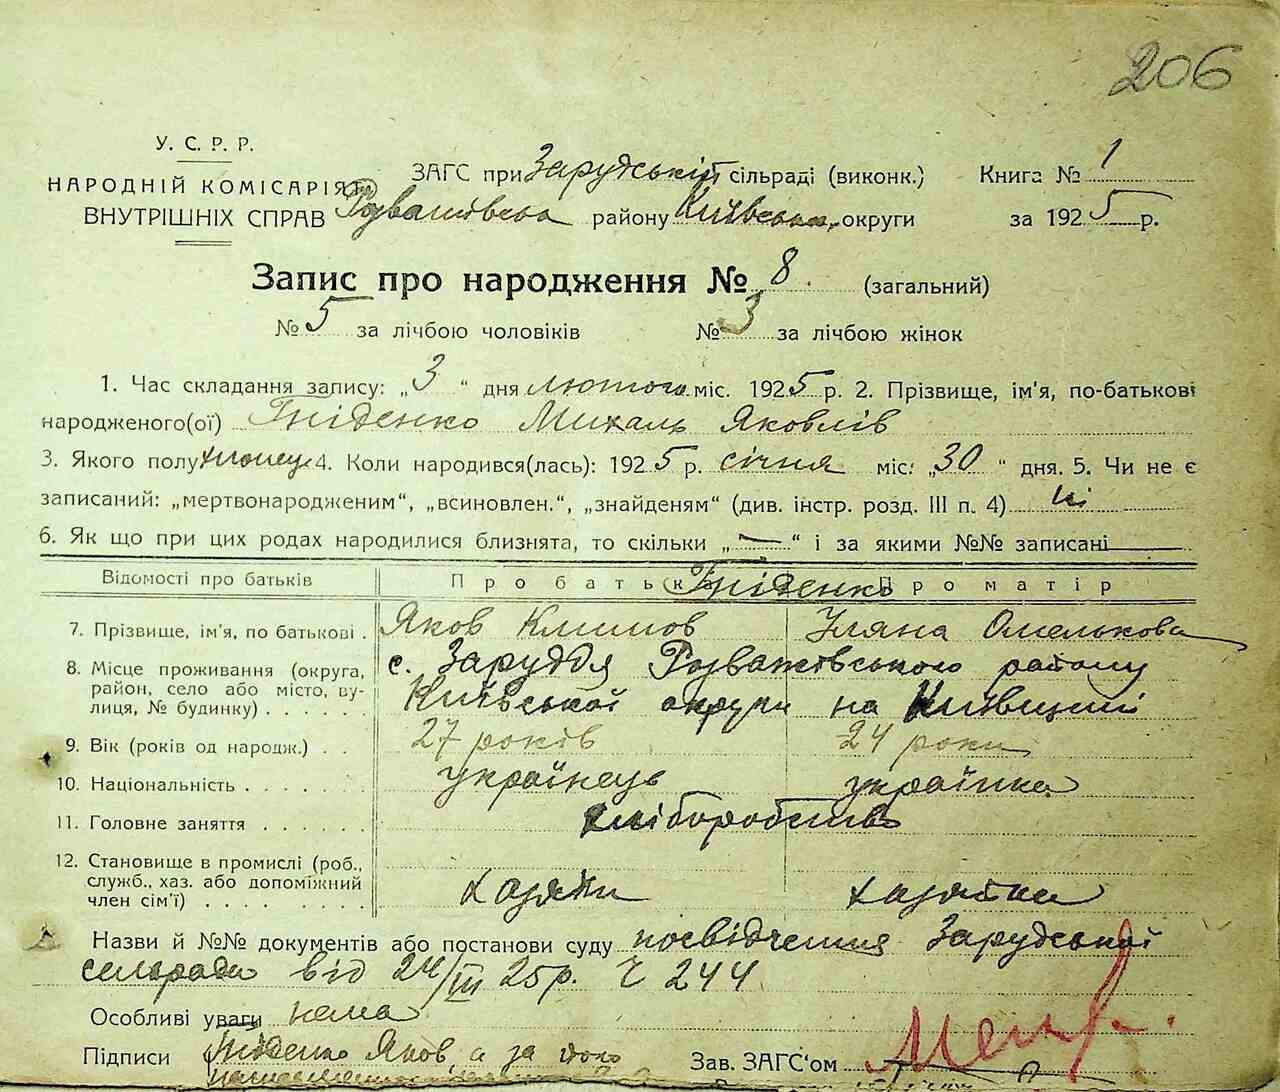 206
У. С. Р. Р.
НАРОДНІЙ КОМІСАРІЯТ
ВНУТРІШНІХ СПРАВ
ЗАГС при Зарудській сільраді (виконк.) Книга № 1
Розважівська району Київська округи за 1925 р.
Запис про народження № 8. (загальний)
№ 5 за лічбою чоловіків № 3 за лічбою жінок
1. Час складання запису: „3“ дня лютого міс. 1925 р. 2. Прізвище, ім'я, по-батькові
народженого(ої) Гніденко Михаль Яковлів
3. Якого полу хлопець 4. Коли народився(лась): 1925 р. січня міс. „30“ дня. 5. Чи не є
записаний: „мертвонародженим“, „всиновлен.“, „знайденям“ (див. інстр. розд. III п. 4) ні
6. Як що при цих родах народилися близнята, то скільки „—“ і за якими №№ записані —
Відомості про батьків Про батька Гніденко Про матір
7. Прізвище, ім'я, по батькові . Яков Климов Уляна Омелькова
8. Місце проживання (округа, с. Заруддя Розважівського району
район, село або місто, ву-
лиця, № будинку) . . . . . Київської округи на Київщині
9. Вік (років од народж.) . . 27 років 24 роки
10. Національність . . . . . . українець українка
11. Головне заняття . . . . . . хліборобство
12. Становище в промислі (роб.,
служб., хаз. або допоміжний
член сім'ї) . . . . . . . . хазяїн хазяйка
Назви й №№ документів або постанови суду посвідчення Зарудської
сельради від 24/III 25р. Ч 244
Особливі уваги нема
Підписи Гніденко Яков а за його Зав. ЗАГС'ом